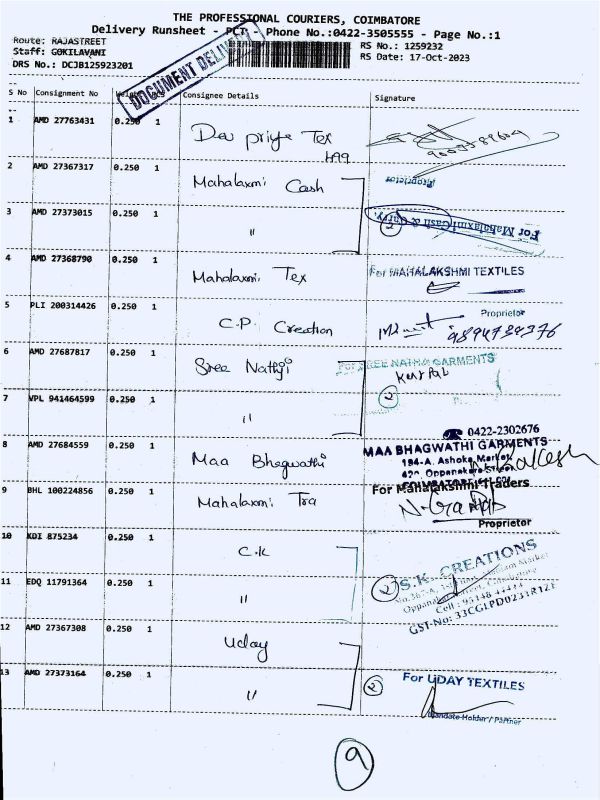 THE PROFESSIONAL COURIERS, COIMBATORE
Delivery Runsheet - PCT - Phone No.:0422-3505555 - Page No.:1
Route: RAJASTREET
RS No.: 1259232
Staff: GOKILAVANI
RS Date: 17-Oct-2023
DRS No.: DCJB125923201
DOCUMENT DELIVERY
S No Consignment No Weight Pcs Consignee Details Signature
1 AMD 27763431 0.250 1 Devi Priya Tex
2 AMD 27367317 0.250 1 Mahalaxmi Cash
Proprietor
3 AMD 27373015 0.250 1 " 2 For Mahalaxmi Cash & Carry.
4 AMD 27368790 0.250 1 Mahalaxmi Tex For MAHALAKSHMI TEXTILES
Proprietor
5 PLI 200314426 0.250 1 C.P. Creation 9894734376
6 AMD 27687817 0.250 1 Sree Nathji For SREE NATHJI GARMENTS
7 VPL 941464599 0.250 1 " 2
0422-2302676
8 AMD 27684559 0.250 1 Maa Bhagwathi MAA BHAGWATHI GARMENTS
184-A, Ashoka Market
Oppanakara Street
9 BHL 100224856 0.250 1 Mahalaxmi Tra For Mahalakshmi Traders
Proprietor
10 KDI 875234 0.250 1 C.K
S.K. CREATIONS
11 EDQ 11791364 0.250 1 " 2
Oppanakara Street, Coimbatore
GST-No: 33CGLPD0231R1ZE
12 AMD 27367308 0.250 1 Uday
13 AMD 27373164 0.250 1 " 2 For UDAY TEXTILES
Mandate Holder / Partner
9